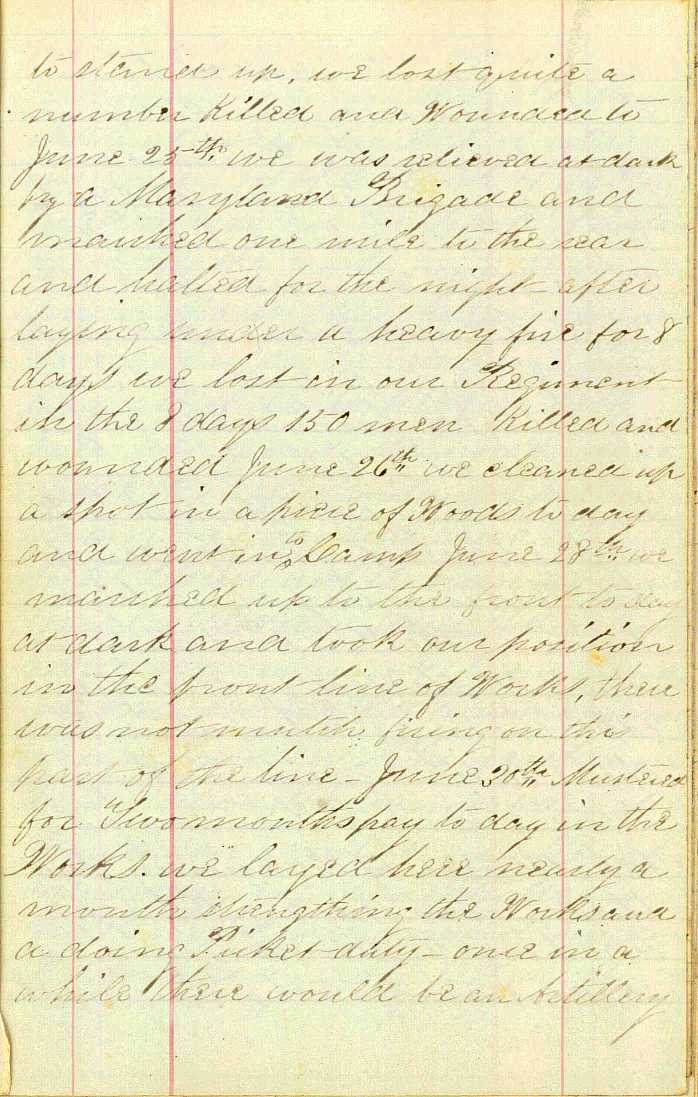 to stand up. we lost quite a
number Killed and Wounded to
June 25th we was relieved at dark
by a Maryland Brigade and
marched one mile to the rear
and halted for the night - after
laying under a heavy fire for 8
days we lost in our Regiment
in the 8 days 150 men Killed and
wounded June 26th we cleaned up
a spot in a piece of Woods to day
and went in to Camp June 28th we
marched up to the front to day
at dark and took our position
in the front line of Works, there
was not mutch firing on this
part of the line - June 30th Mustered
for Two months pay to day in the
Works. we layed here nearly a
month strengthing the Works and
a doing Picket duty - once in a
while there would be an Artillery